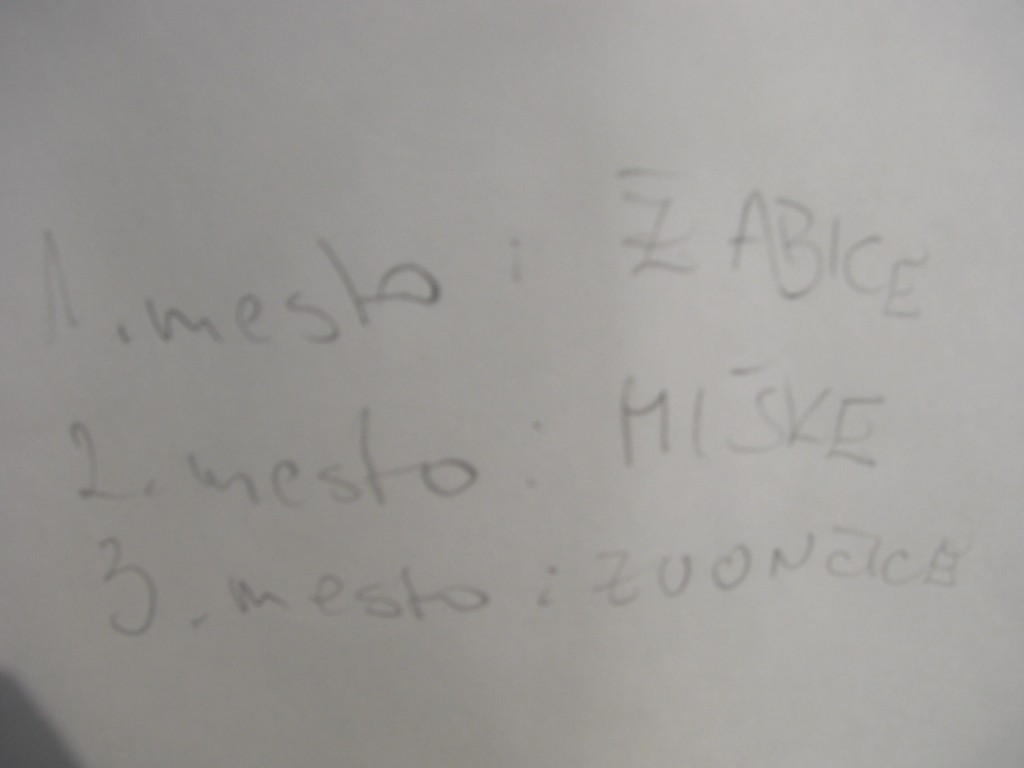 1. mesto: ŽABICE
2. mesto: MIŠKE
3. mesto: ZVONČICE